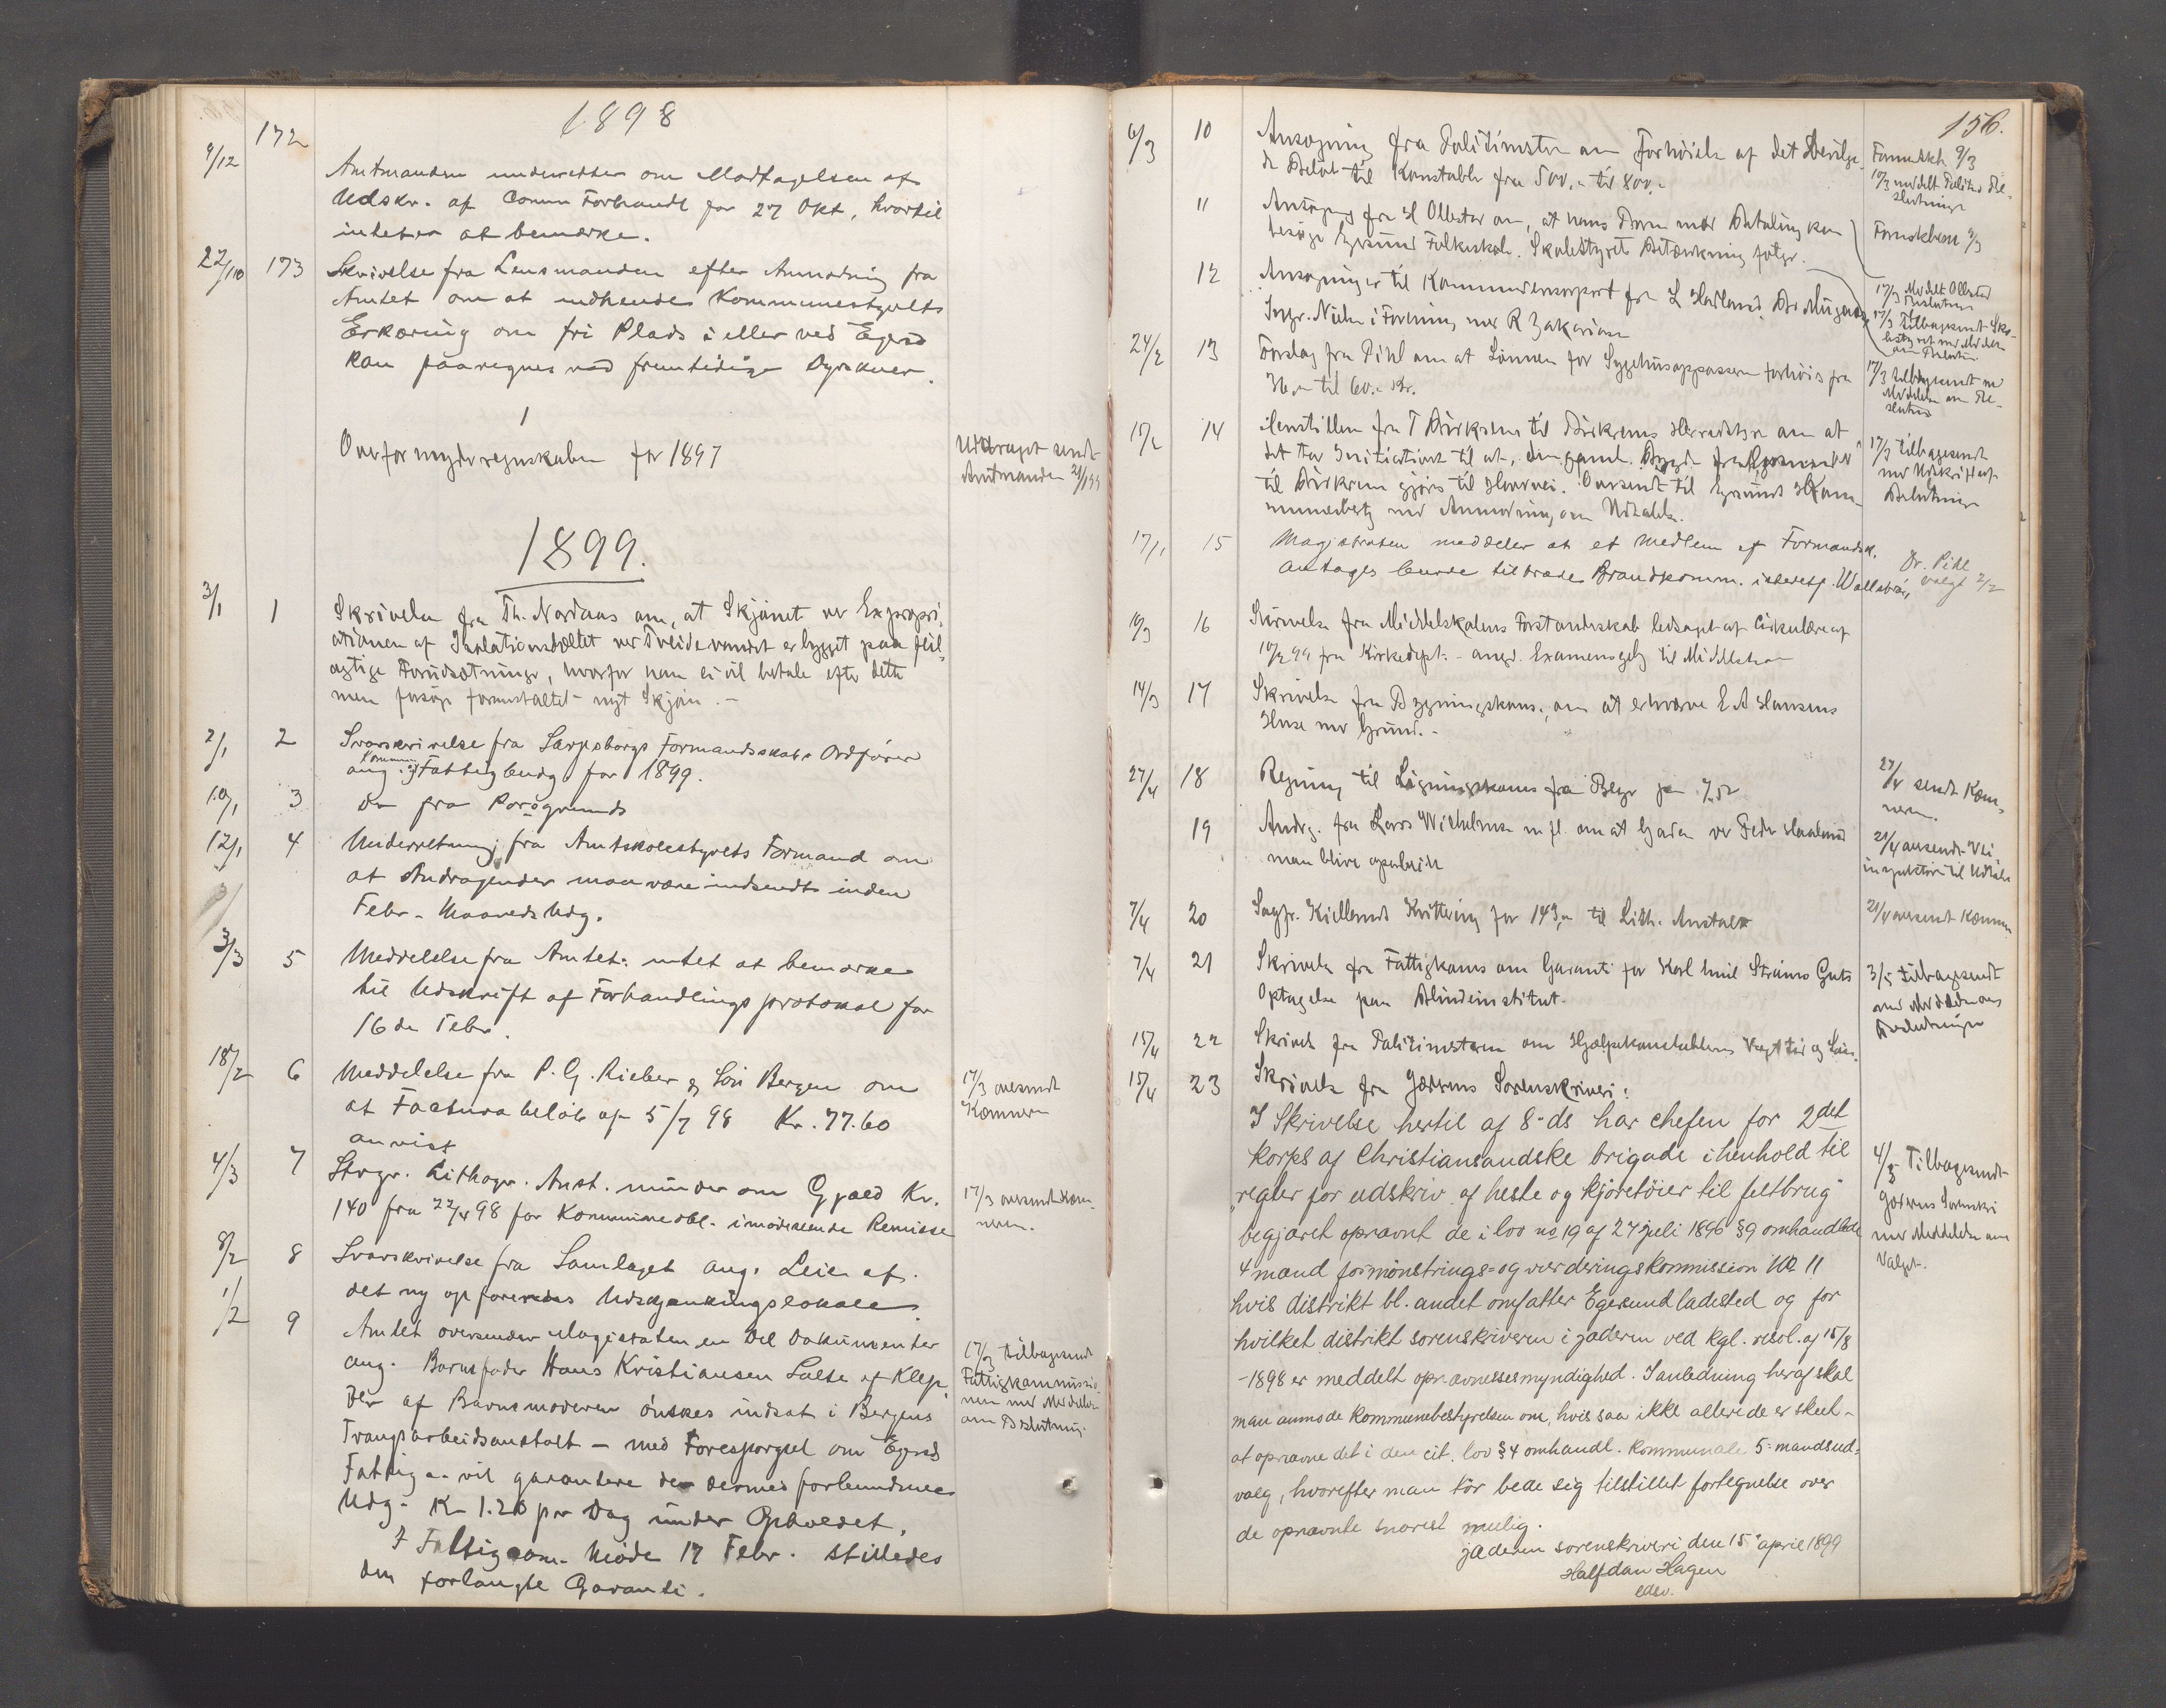 1898
9/12 172
Amtmanden underretter om Modtagelsen af
Udskr. af Comm Forhandl for 27 Okt, hvortil
intet er at bemærke.
22/10 173 Skrivelse fra Lensmanden efter Anmodning fra
Amtet om at indhendes Kommunestyrets
Erkæring om fri Plads i eller ved Egersd
kan paaregnes ved fremtidige Dyrskuer.
1
Overformynderregnskaber for 1897
Uddraget sendt
Amtmanden 21/1 99
1899.
3/1 1 Skrivelse fra Th. Nordaas om, at Skjønnet ved Expropri-
ationen af Isolationsbæltet ved Tveidevandet er bygget paa feil-
agtige Forudsætninger, hvorfor han ei vil betale efter dette
men forsøge foranstaltet nyt Skjøn. -
2/1 2 Svarskrivelse fra Sarpsborgs Formandsskabs Ordfører
ang. Kommun og Fattigbudg. for 1899.
10/1 3 do fra Porsgrunds
12/1 4 Underretning fra Amtskolestyrets Formand om
at Andragender maa være indsendt inden
Febr. Maaneds Udg.
3/3 5 Meddelelse fra Amtet: intet at bemærke
til Udskrift af Forhandlingsprotokol for
16de Febr.
18/2 6 Meddelelse fra P. G. Rieber & Søn Bergen om
at Facturabeløb af 5/7 98 Kr. 77.60
anvist
17/3 oversendt
Kæmneren
4/3 7 Stvgr. Lithogr. Anst. minder om Gjæld Kr.
140 fra 22/4 98 for Kommuneobl. imødeseende Remisse
17/3 oversendt Kæm-
neren.
8/2 8 Svarskrivelse fra Samlaget ang. Leie af
det ny opførendes Udskjænkningslokale
1/2 9 Amtet oversender Magistraten en Del Dokumenter
ang. Barnefader Hans Kristiansen Salte af Klep
der af Barnemoderen ønskes indsat i Bergens
Tvangsarbeidsanstalt - med Forespørgsel om Egersds
Fattigv. vil garantere de dermed forbundne
Udg. Kr 1.20 pr Dag under Opholdet.
I Fattigcom. Møde 17 Febr. stilledes
den forlangte Garanti.
17/3 tilbagesendt
Fattigkommissio-
nen med Meddelelse
om Beslutning.
156.
6/3 10 Ansøgning fra Politimester om Forhøielse af det bevilge-
de Beløb til Konstabler fra 500,- til 800,-
Formdskb 9/3
10/3 meddelt Politim Be-
slutninge
11 Ansøgning fra H Ollestad om, at hans Børn mod Betaling kan
besøge Egersund Folkeskole. Skolestyrets Betænkning følger.
Formskbem 9/3
17/3 Meddelt Ollestad
Beslutnin
17/3 tilbagesendt Sko-
lestyret med Meddel
om Beslutn
12 Ansøgninger til Kommuneransport fra L Hadland, Br Mügaas,
Ingr. Nielsen i Forening med R Zakariasen
24/2 13 Forslag fra Pihl om at Lønnen for Sygehusopasseren forhøies fra
36.- til 60.- Kr.
17/3 tilbagesendt m
Meddelse om Be-
slutnin
15/2 14 Henstillen fra T Birkrem til Birkrems Herredstyre om at
det tar Initiativet til at, den gamle Bygdev fra Egersund
til Birkrem gjøres til Hovevei. Oversendt til Egersunds Kom-
munebesty med Anmodning om Udtalelse.
17/3 tilbagesendt
med Udskrift af
Beslutninge
17/1 15 Magistraten meddeler at et Medlem af Formandsk.
antages burde tiltræde Brandkomm. istedetf. Wallebræ,
Dr. Pihl
valgt 2/2
10/3 16 Skrivelse fra Middelskolens Forstanderskab ledsaget af Cirkulære af
10/2 99 fra Kirkedept. - angd. Examensgeby til Middelskole
14/3 17 Skrivelse fra Bygningskoms., om at erhverve E A Hansens
Huse med Grund. -
27/4 18 Regning til Ligningskoms fra Berge for 7,52
27/4 sendt Kæm-
neren.
19 Andrg. fra Lars Wilhelmsen m fl. om at Gaden ved Peder Haaland
maa blive oparbeidet
21/4 oversendt Vei
inspektøren til Udtalelse
7/4 20 Sagfr. Kiellands Kvittering for 143,- til Lith. Anstalt
21/4 oversendt Kæmne
7/4 21 Skrivelse fra Fattigkoms om Garanti for Karl Emil Strøms Guts
Optagelse paa Blindeinstitut.
3/5 tilbagesendt
med Meddelelse om
Beslutninge
15/4 22 Skrivels fra Politimesteren om Hjælpekonstablens Vagttid og Løn.
15/4 23 Skrivelse fra Jæderens Sorenskriveri:
I Skrivelse hertil af 8-ds har chefen for 2det
korps af Christiansandske brigade i henhold til
"regler for udskriv. af heste og kjøretøier til feltbrug"
begjæret opnævnt de i lov no 19 af 27 juli 1896 §9 omhandlede
4 mænd for mønstrings- og vurderingskommission No 11
hvis distrikt bl. andet omfatter Egersund ladested og for
hvilket distrikt sorenskriveren i jæderen ved kgl. resol. af 15/8
-1898 er meddelt opnævnelsesmyndighed. I anledning heraf skal
man anmode kommunebestyrelsen om, hvis saa ikke allerede er skeet -
at opnævne det i den cit. lov §4 omhandl. kommunale 5-mandsud-
valg, hvorefter man tør bede sig tilstillet fortegnelse over
de opnævnte snarest mulig.
jæderen sorenskriveri den 15 april 1899
Halfdan Hagen
edsv.
4/5 Tilbagesendt
Jæderens Sorenskri
med Meddelelse om
Valget.